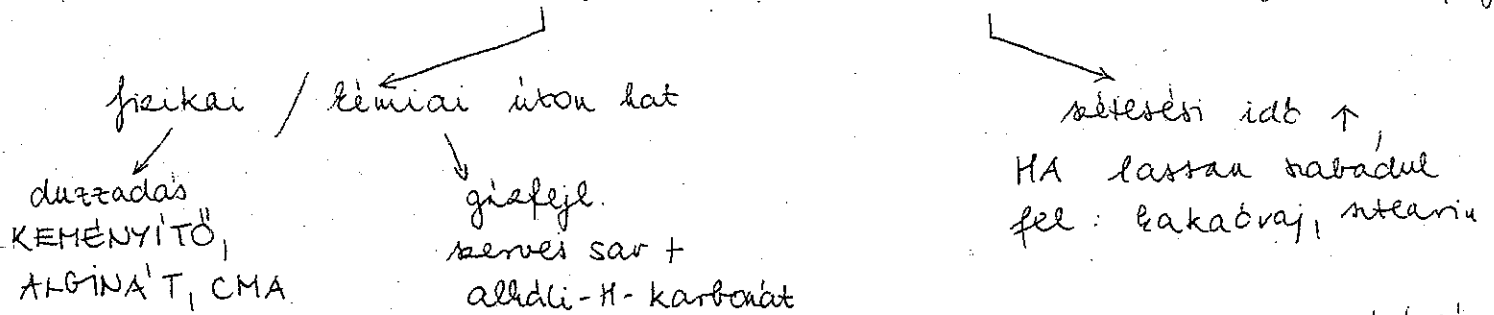 fizikai / kémiai úton hat
szétesési idő ↑,
duzzadás
KEMÉNYÍTŐ,
ALGINÁT, CMA
gázfejl.
szerves sav +
alkáli-H-karbonát
HA lassan szabadul
fel: kakaóvaj, sztearin